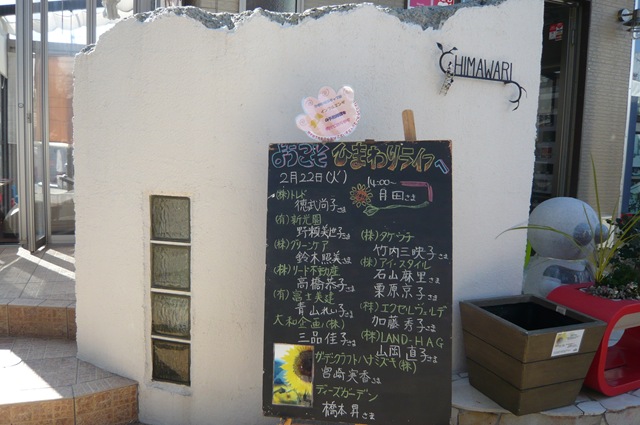 HIMAWARI
ようこそ ひまわりライフへ
2月22日(火)
14:00~
月田さま
(株)トレド
徳武尚子さま
(有)新光園
野瀬美也子さま
(株)グリーンケア
鈴木照美さま
(株)リード不動産
高橋恭子さま
(有)富士美建
青山れい子さま
大和企画(株)
三品佳子さま
(株)タケウチ
竹内三映子さま
(株)アイ・スタイル
石山麻里さま
栗原京子さま
(株)エクセレヴォルデ
加藤秀子さま
(株)LAND-HAG
山岡直子さま
ガーデンクラフトハナミズキ(株)
宮崎実香さま
ディーズガーデン
橋本昇さま